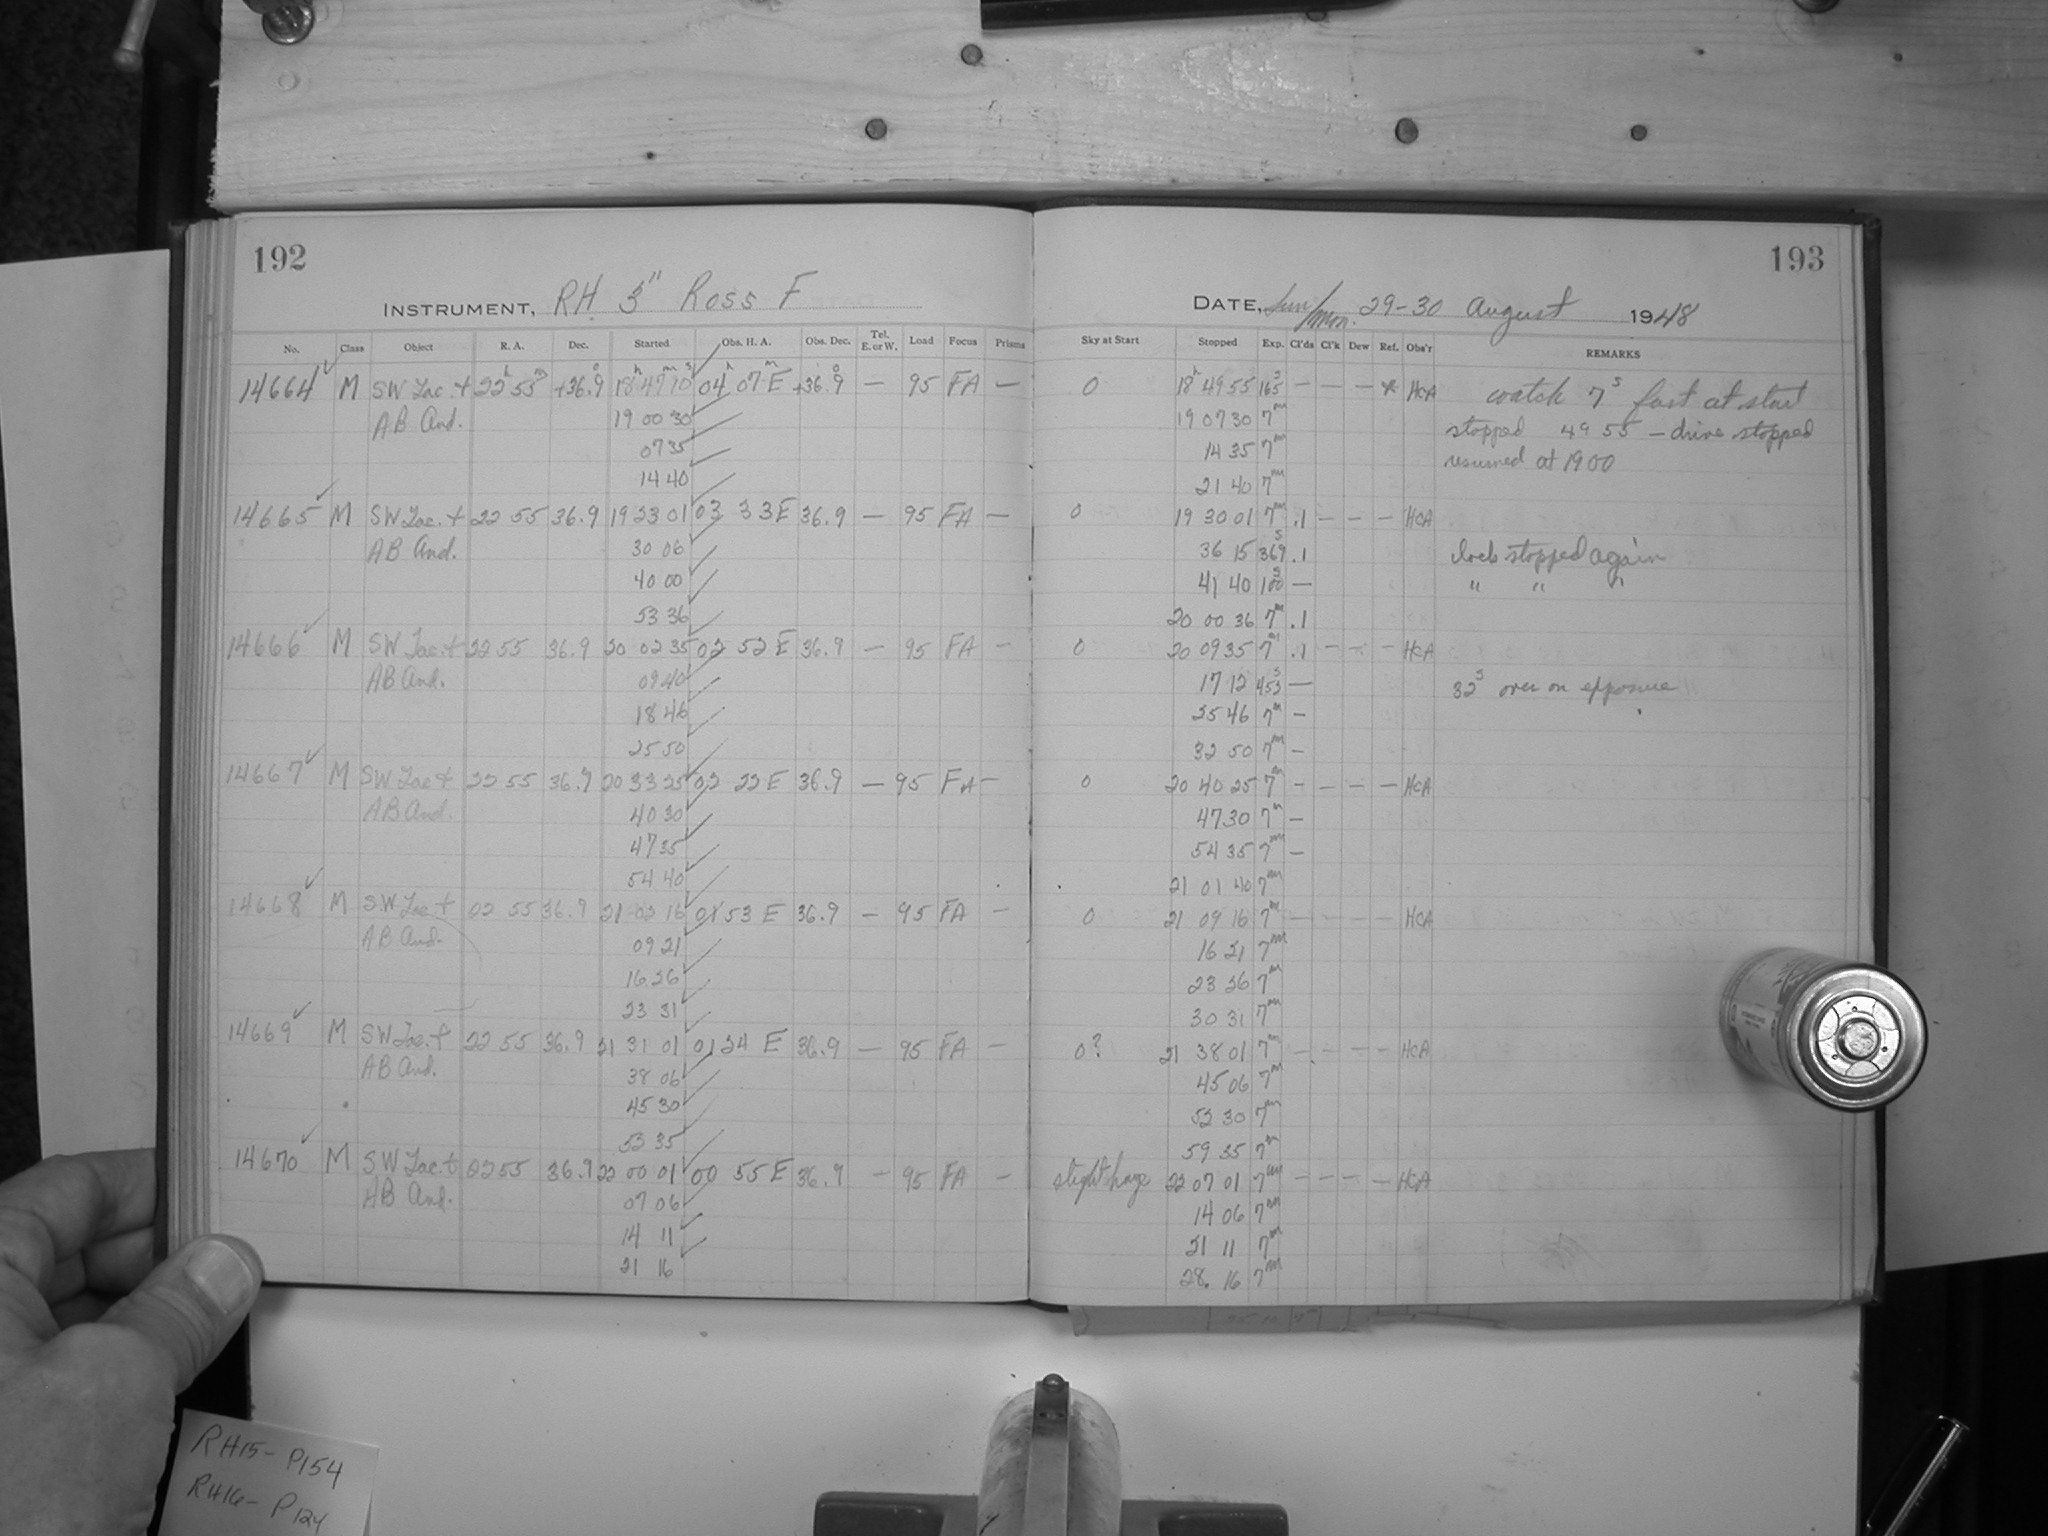 192
INSTRUMENT, RH 3" Ross F
No. Class Object R. A. Dec. Started Obs. H. A. Obs. Dec. Tel. E. or W. Load Focus Prisms
14664 ✓ M SW Lac. + 22h 55m +36.°9 18h 47m 10s 04h 07m E +36.°9 — 95 FA —
AB And. 19 00 30
07 35
14 40
14665 ✓ M SW Lac. + 22 55 36.9 19 23 01 03 33 E 36.9 — 95 FA —
AB And. 30 06
40 00
53 36
14666 ✓ M SW Lac. + 22 55 36.9 20 02 35 02 52 E 36.9 — 95 FA —
AB And. 09 40
18 46
25 50
14667 ✓ M SW Lac + 22 55 36.9 20 33 25 02 22 E 36.9 — 95 FA —
AB And. 40 30
47 35
54 40
14668 ✓ M SW Lac. + 22 55 36.9 21 02 16 01 53 E 36.9 — 95 FA —
AB And. 09 21
16 26
23 31
14669 ✓ M SW Lac. + 22 55 36.9 21 31 01 01 24 E 36.9 — 95 FA —
AB And. 38 06
45 30
52 35
14670 ✓ M SW Lac. + 22 55 36.9 22 00 01 00 55 E 36.9 — 95 FA —
AB And. 07 06
14 11
21 16
193
DATE, Sun/Mon. 29-30 August 1948
Sky at Start Stopped Exp. Cl'ds Cl'k Dew Ref. Obs'r REMARKS
0 18h 49 55 165s — — — * HCA watch 7s fast at start
19 07 30 7m stopped 49 55 — drive stopped
14 35 7m resumed at 1900
21 40 7m
0 19 30 01 7m .1 — — — HCA
36 15 369s .1 stopped again
41 40 100s — " " "
20 00 36 7m .1
0 20 09 35 7m .1 — — — HCA
17 12 453s — 32s over on exposure
25 46 7m —
32 50 7m —
0 20 40 25 7m — — — — HCA
47 30 7m —
54 35 7m —
21 01 40 7m
0 21 09 16 7m — — — — HCA
16 21 7m
23 26 7m
30 31 7m
0? 21 38 01 7m — — — — HCA
45 06 7m
52 30 7m
59 35 7m
slight haze 22 07 01 7m — — — — HCA
14 06 7m
21 11 7m
28 16 7m
RH15- P154
RH16- P124